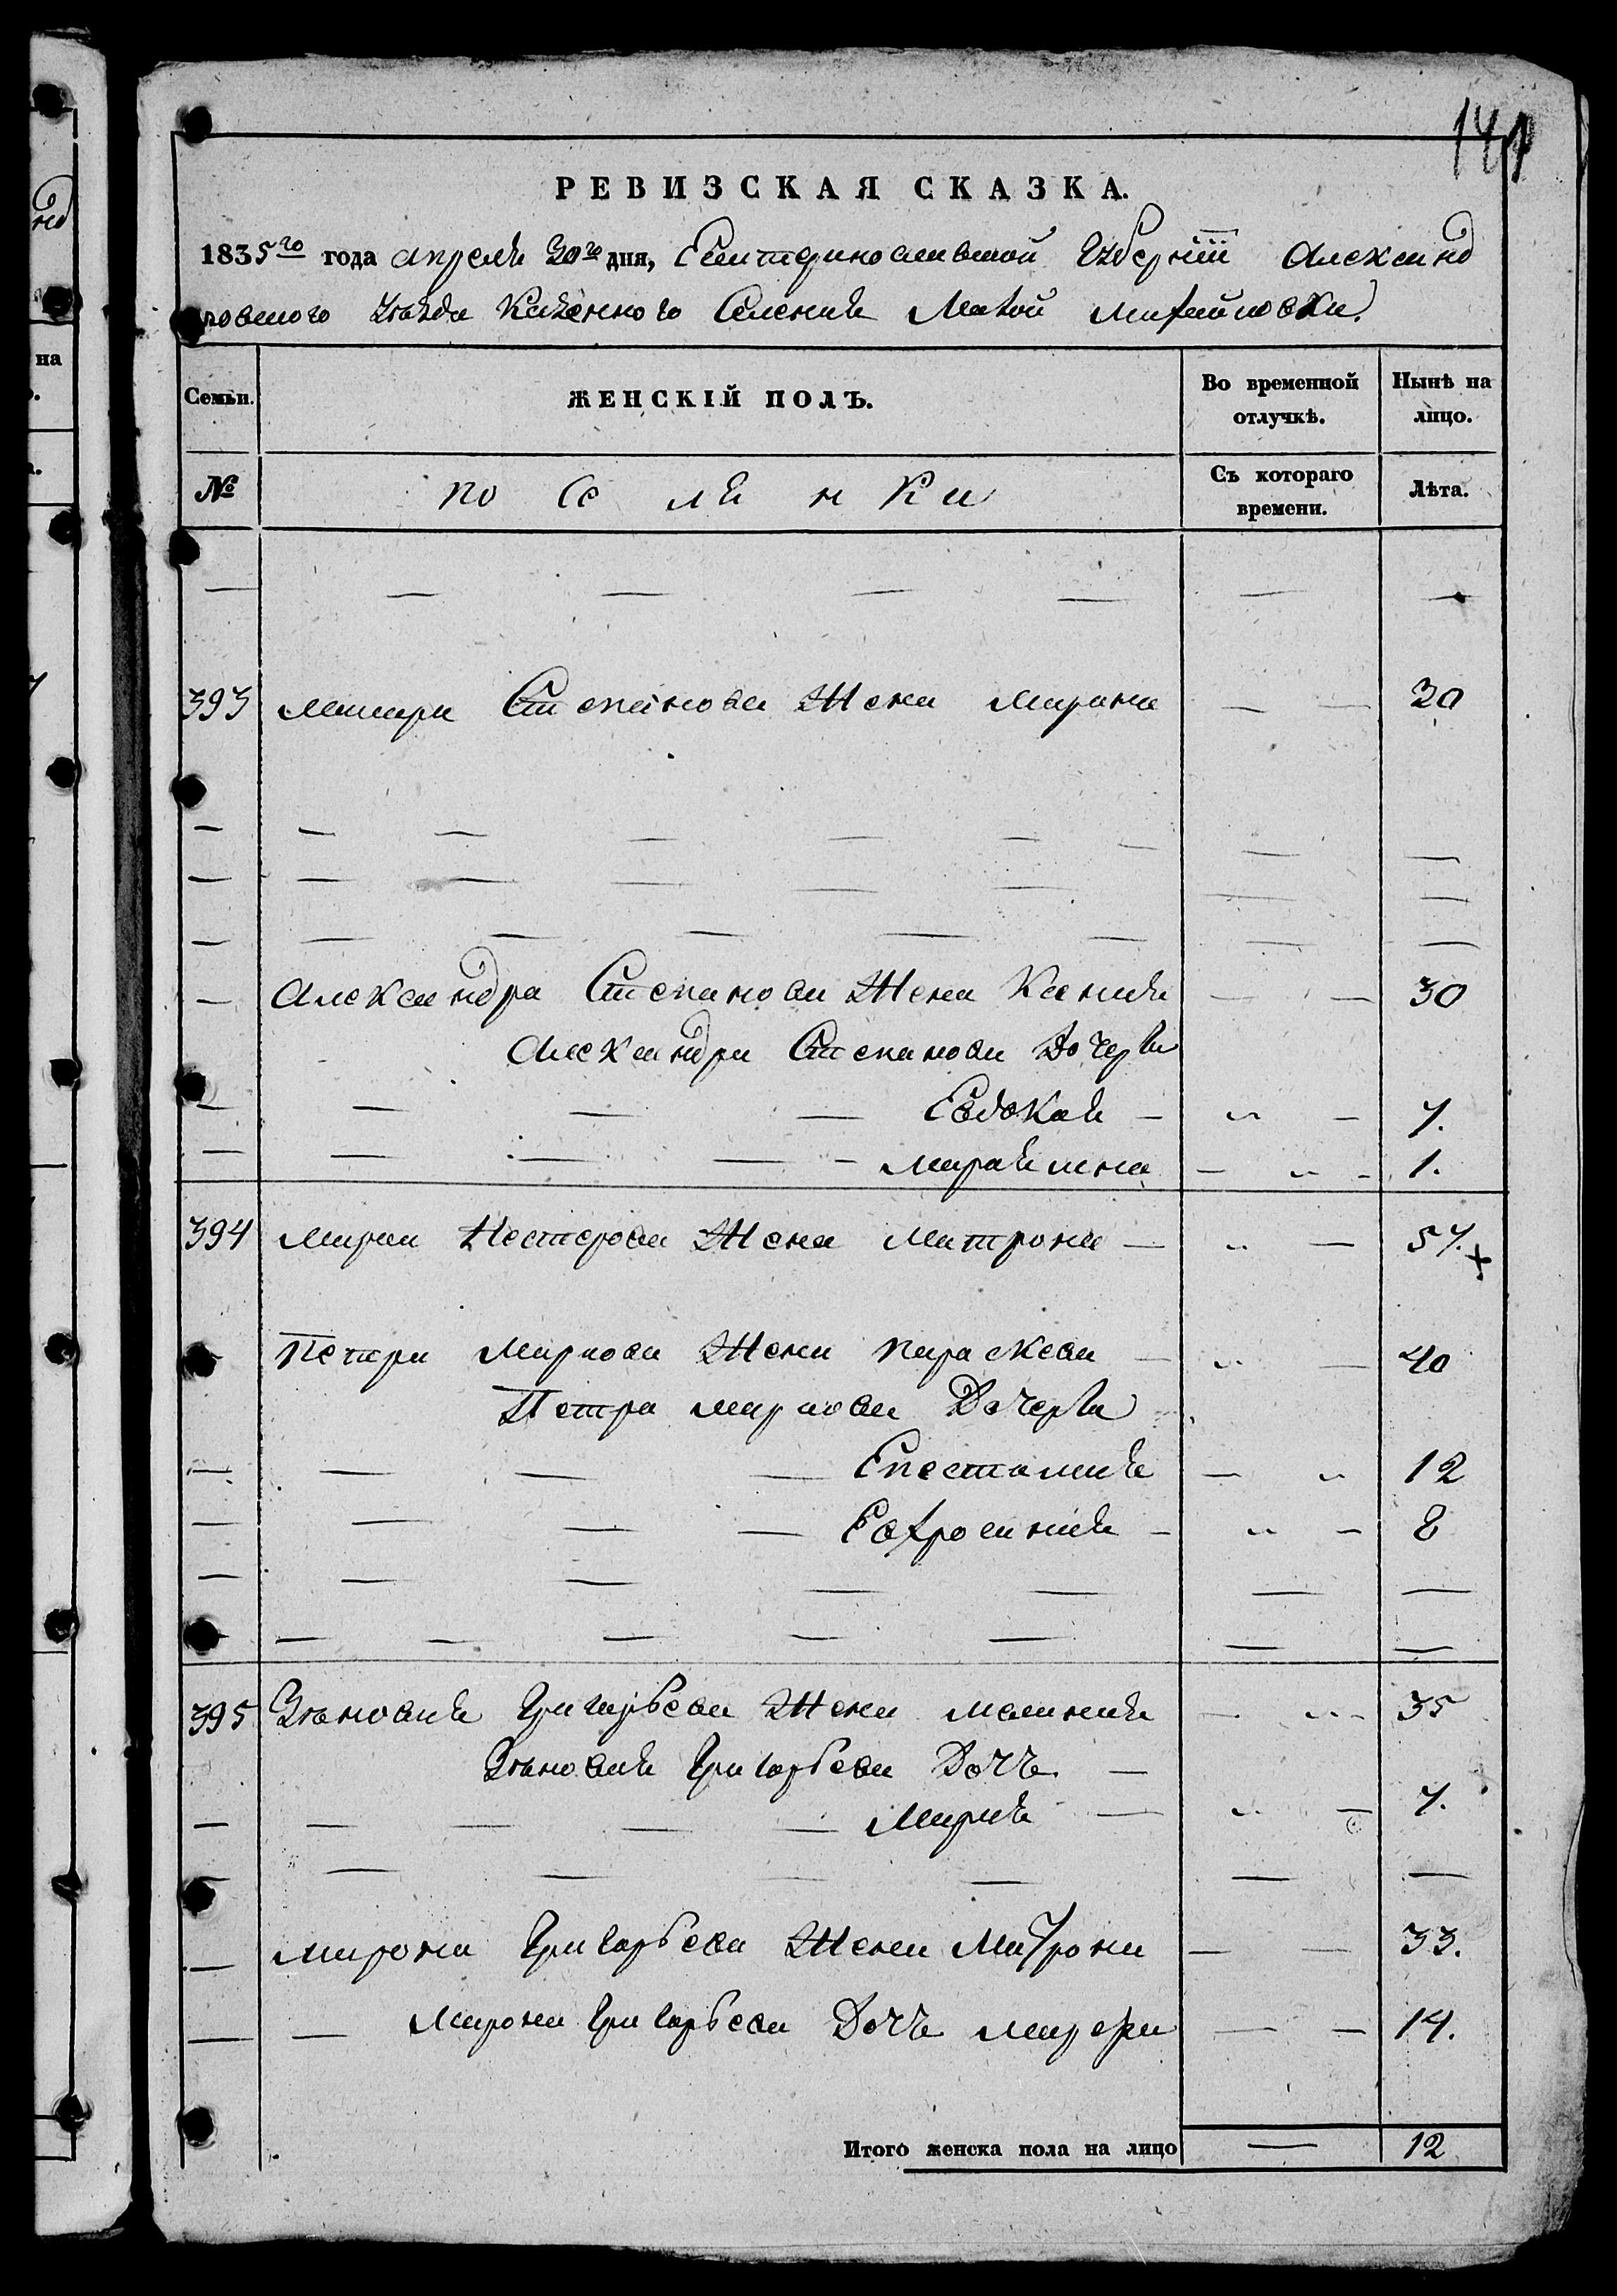 141
РЕВИЗСКАЯ СКАЗКА.
1835го года апреля 30го дня, Екатеринославской Губернїи Александ
ровского Уѣзда Казенного Селения Малой Михайловки.
Семьи. ЖЕНСКІЙ ПОЛЪ. Во временной отлучкѣ. Нынѣ на лицо.
№ по се ля н ки Съ котораго времени. Лѣта.
393 Степанова Жена Марина — — 30
— Александра Степанова Жена Ксения — — 30
Александра Степанова Дочери
— — — — Евдокия — „ — 7.
— — — — — — „ - 1.
394 Марка Нестерова Жена Матрона — „ — 57. +
Петра Маркова Жена Параскева — „ — 40
Петра Маркова Дочери
— — — — Епестимия — „ 12
— — — — Евфросиния — „ — 8
395 Зѣновия Григорьева Жена Мелания — „ - 35
Зѣновия Григорьева Дочь —
— — — — — Мария — „ — 7.
— Мирона Григорьева Жена Матрона — — 33.
— — Мирона Григорьева Дочь — — 14.
Итого женска пола на лицо — 12
на